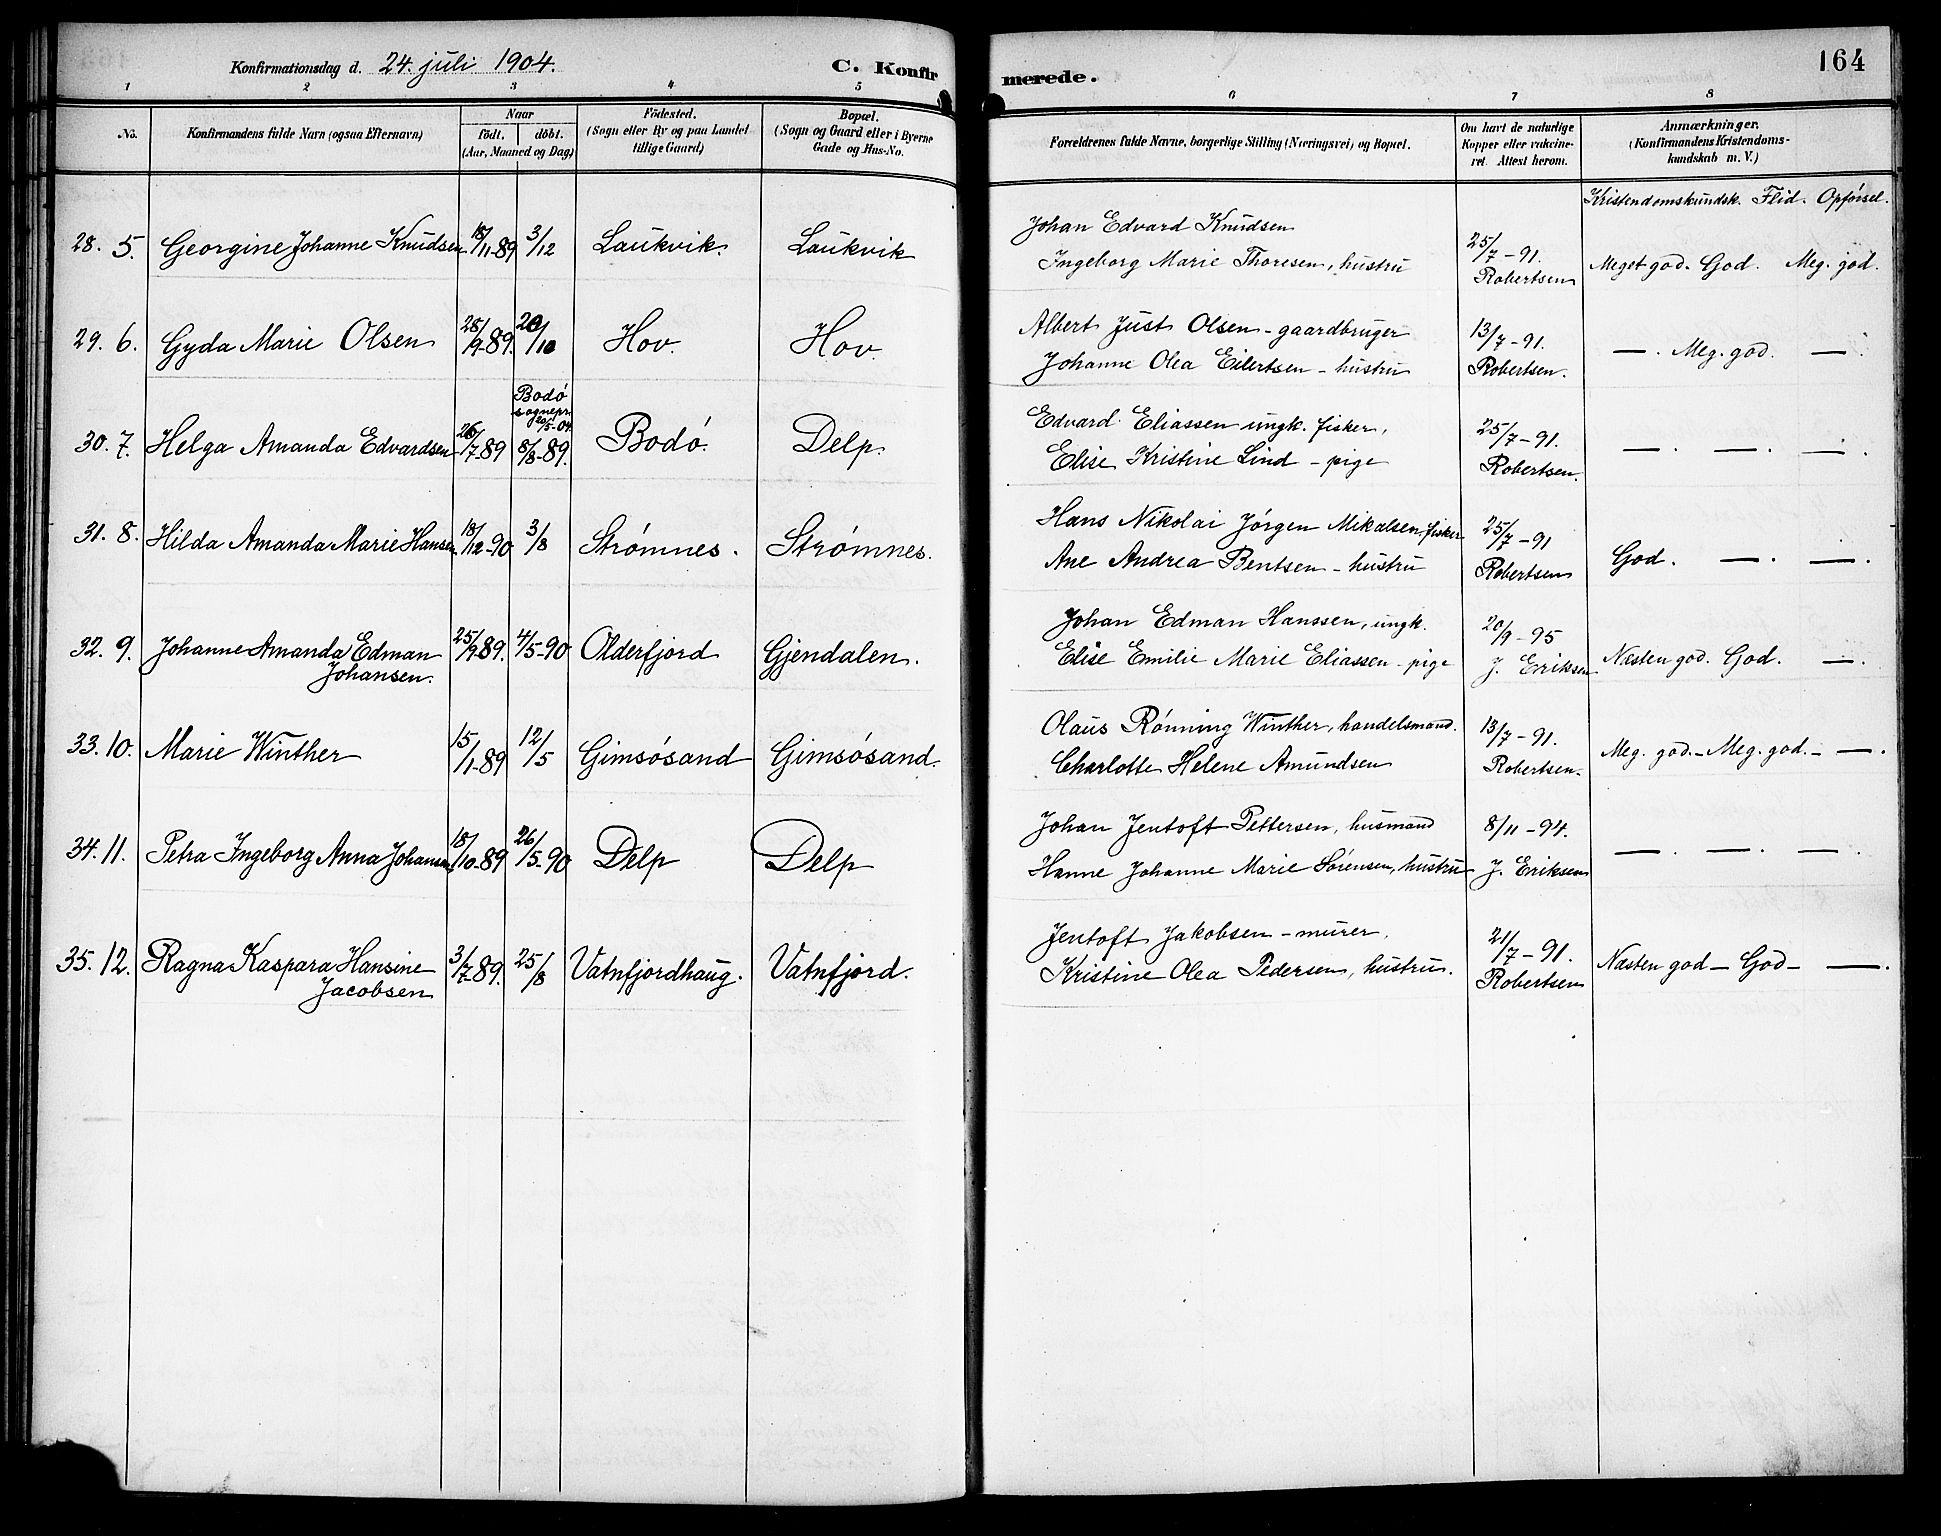 Konfirmationsdag d. 24. juli 1904.
C. Konfirmerede.
164
1 2 3 4 5 6 7 8
No.
Konfirmandens fulde Navn (ogsaa Efternavn)
Naar
födt. döbt.
(Aar, Maaned og Dag)
Födested.
(Sogn eller By og paa Landet
tillige Gaard)
Bopæl.
(Sogn og Gaard eller i Byerne
Gade og Hus-No.
Forældrenes fulde Navne, borgerlige Stilling (Næringsvei) og Bopæl.
Om havt de naturlige
Kopper eller vakcine-
ret. Attest herom.
Anmærkninger.
(Konfirmandens Kristendoms-
kundskab m. V.)
Kristendomskundsk. Flid. Opførsel.
28. 5. Georgine Johanne Knudsen 18/11-89 3/12 Laukvik. Laukvik
Johan Edvard Knudsen
Ingeborg Marie Thoresen, hustru
25/7-91.
Robertsen
Meget god. God. Meg. god.
29. 6. Gyda Marie Olsen 28/9-89. 20/10 Hov. Hov.
Albert Just Olsen - gaardbruger
Johanne Olea Eilertsen - hustru
13/7-91.
Robertsen.
—. Meg. god. —.
30. 7. Helga Amanda Edvardsen 26/7-89
Bodø
sognepr.
20/5-04
8/8-89. Bodø. Delp.
Edvard Eliassen ungk. fisker,
Elise Kristine Lind - pige
25/7-91.
Robertsen.
—. —. —.
31. 8. Hilda Amanda Marie Hansen 18/12-90 3/8 Strømnes. Strømnes.
Hans Nikolai Jørgen Mikalsen, fisker
Ane Andrea Bentsen - hustru
25/7-91
Robertsen
God. —. —.
32. 9. Johanne Amanda Edman
Johansen. 25/9-89. 4/5-90 Olderfjord Gjendalen.
Johan Edman Hanssen, ungk.
Elise Emilie Marie Eliassen - pige
20/9-95
J. Eriksen
Næsten god. God. —.
33. 10. Marie Winther 15/1-89 12/5 Gimsøsand Gimsøsand.
Olaus Rønning Winther, handelsmand.
Charlotte Helene Amundsen
13/7-91.
Robertsen.
Meg. god. - Meg. god. - —.
34. 11. Petra Ingeborg Anna Johansen 18/10-89 26/5-90 Delp Delp
Johan Jentoft Pettersen, husmand
Hanne Johanne Marie Sørensen, hustru
8/11-94.
J. Eriksen
—. —. —.
35. 12. Ragna Kaspara Hansine
Jacobsen 3/7-89. 25/8 Vatnfjordhaug. Vatnfjord.
Jentoft Jakobsen - murer.
Kristine Olea Pedersen, hustru.
21/7-91.
Robertsen
Næsten god - God - —.